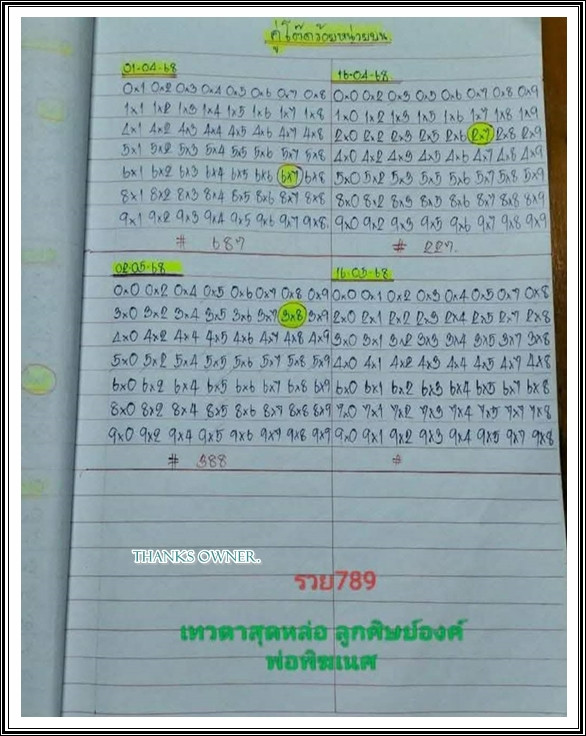 คู่โต๊ดร้อยหน่วยบน.
01-04-68
0x1 0x2 0x3 0x4 0x5 0x6 0x7 0x8
1x1 1x2 1x3 1x4 1x5 1x6 1x7 1x8
4x1 4x2 4x3 4x4 4x5 4x6 4x7 4x8
5x1 5x2 5x3 5x4 5x5 5x6 5x7 5x8
6x1 6x2 6x3 6x4 6x5 6x6 6x7 6x8
8x1 8x2 8x3 8x4 8x5 8x6 8x7 8x8
9x1 9x2 9x3 9x4 9x5 9x6 9x7 9x8.
# 687
16-04-68.
0x0 0x2 0x3 0x5 0x6 0x7 0x8 0x9
1x0 1x2 1x3 1x5 1x6 1x7 1x8 1x9
2x0 2x2 2x3 2x5 2x6 2x7 2x8 2x9
4x0 4x2 4x3 4x5 4x6 4x7 4x8 4x9
5x0 5x2 5x3 5x5 5x6 5x7 5x8 5x9
8x0 8x2 8x3 8x5 8x6 8x7 8x8 8x9
9x0 9x2 9x3 9x5 9x6 9x7 9x8 9x9
# 227.
02-05-68
0x0 0x2 0x4 0x5 0x6 0x7 0x8 0x9
3x0 3x2 3x4 3x5 3x6 3x7 3x8 3x9
4x0 4x2 4x4 4x5 4x6 4x7 4x8 4x9
5x0 5x2 5x4 5x5 5x6 5x7 5x8 5x9
6x0 6x2 6x4 6x5 6x6 6x7 6x8 6x9
8x0 8x2 8x4 8x5 8x6 8x7 8x8 8x9
9x0 9x2 9x4 9x5 9x6 9x7 9x8 9x9
# 388
16-05-68
0x0 0x1 0x2 0x3 0x4 0x5 0x7 0x8
2x0 2x1 2x2 2x3 2x4 2x5 2x7 2x8
3x0 3x1 3x2 3x3 3x4 3x5 3x7 3x8
4x0 4x1 4x2 4x3 4x4 4x5 4x7 4x8
6x0 6x1 6x2 6x3 6x4 6x5 6x7 6x8
7x0 7x1 7x2 7x3 7x4 7x5 7x7 7x8
9x0 9x1 9x2 9x3 9x4 9x5 9x7 9x8
THANKS OWNER.
รวย789
เทวดาสุดหล่อ ลูกศิษย์องค์
พ่อพิฆเนศ